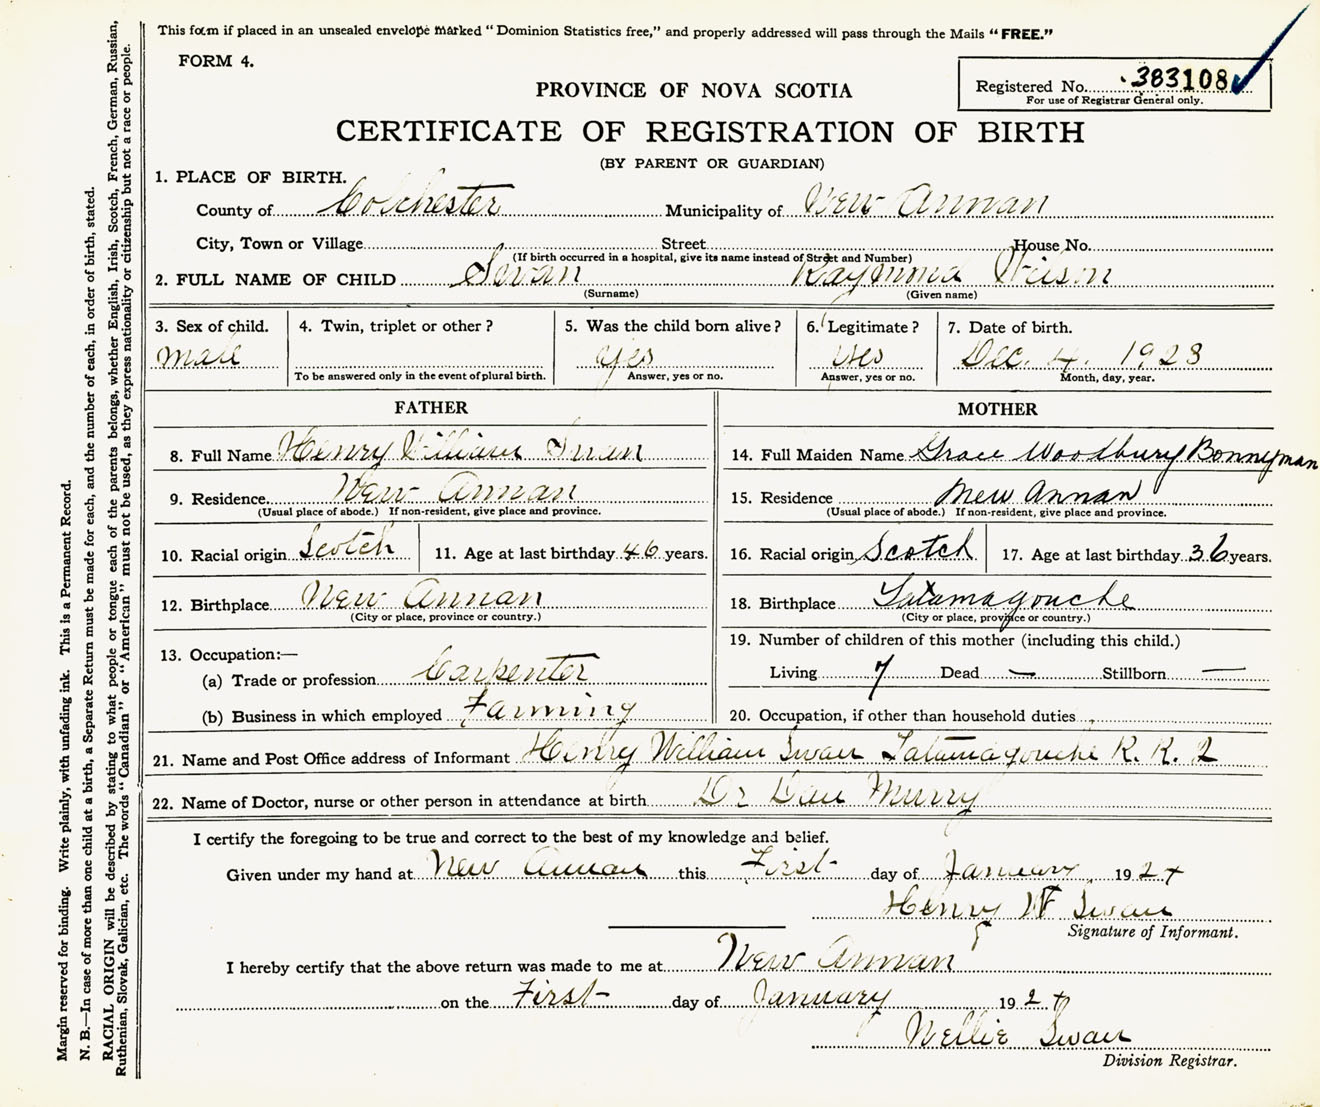 This form if placed in an unsealed envelope marked "Dominion Statistics free," and properly addressed will pass through the Mails "FREE."
FORM 4.
Registered No. 383108
For use of Registrar General only.
PROVINCE OF NOVA SCOTIA
CERTIFICATE OF REGISTRATION OF BIRTH
(BY PARENT OR GUARDIAN)
1. PLACE OF BIRTH.
County of Colchester Municipality of New Annan
City, Town or Village Street House No.
(If birth occurred in a hospital, give its name instead of Street and Number)
2. FULL NAME OF CHILD Swan Raymond Wilson
(Surname) (Given name)
3. Sex of child. 4. Twin, triplet or other? 5. Was the child born alive? 6. Legitimate? 7. Date of birth.
male yes yes Dec. 4. 1923
To be answered only in the event of plural birth. Answer, yes or no. Answer, yes or no. Month, day, year.
FATHER
8. Full Name Henry William Swan
9. Residence New Annan
(Usual place of abode.) If non-resident, give place and province.
10. Racial origin Scotch 11. Age at last birthday 46 years.
12. Birthplace New Annan
(City or place, province or country.)
13. Occupation:—
(a) Trade or profession Carpenter
(b) Business in which employed Farming
MOTHER
14. Full Maiden Name Grace Woodbury Bonnyman
15. Residence New Annan
(Usual place of abode.) If non-resident, give place and province.
16. Racial origin Scotch 17. Age at last birthday 36 years.
18. Birthplace Tatamagouche
(City or place, province or country.)
19. Number of children of this mother (including this child.)
Living 7 Dead — Stillborn —
20. Occupation, if other than household duties
21. Name and Post Office address of Informant Henry William Swan Tatamagouche R. R. 2
22. Name of Doctor, nurse or other person in attendance at birth Dr Dan Murry
I certify the foregoing to be true and correct to the best of my knowledge and belief.
Given under my hand at New Annan this First day of January 1924
Henry W Swan
Signature of Informant.
I hereby certify that the above return was made to me at New Annan
on the First day of January 1924
Nellie Swan
Division Registrar.
Margin reserved for binding. Write plainly, with unfading ink. This is a Permanent Record.
N. B.—In case of more than one child at a birth, a Separate Return must be made for each, and the number of each, in order of birth, stated.
RACIAL ORIGIN will be described by stating to what people or tongue each of the parents belongs, whether English, Irish, Scotch, French, German, Russian,
Ruthenian, Slovak, Galician, etc. The words "Canadian" or "American" must not be used, as they express nationality or citizenship but not a race or people.